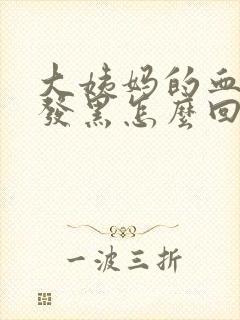 大姨妈的血
發黑怎麼回
一波三折